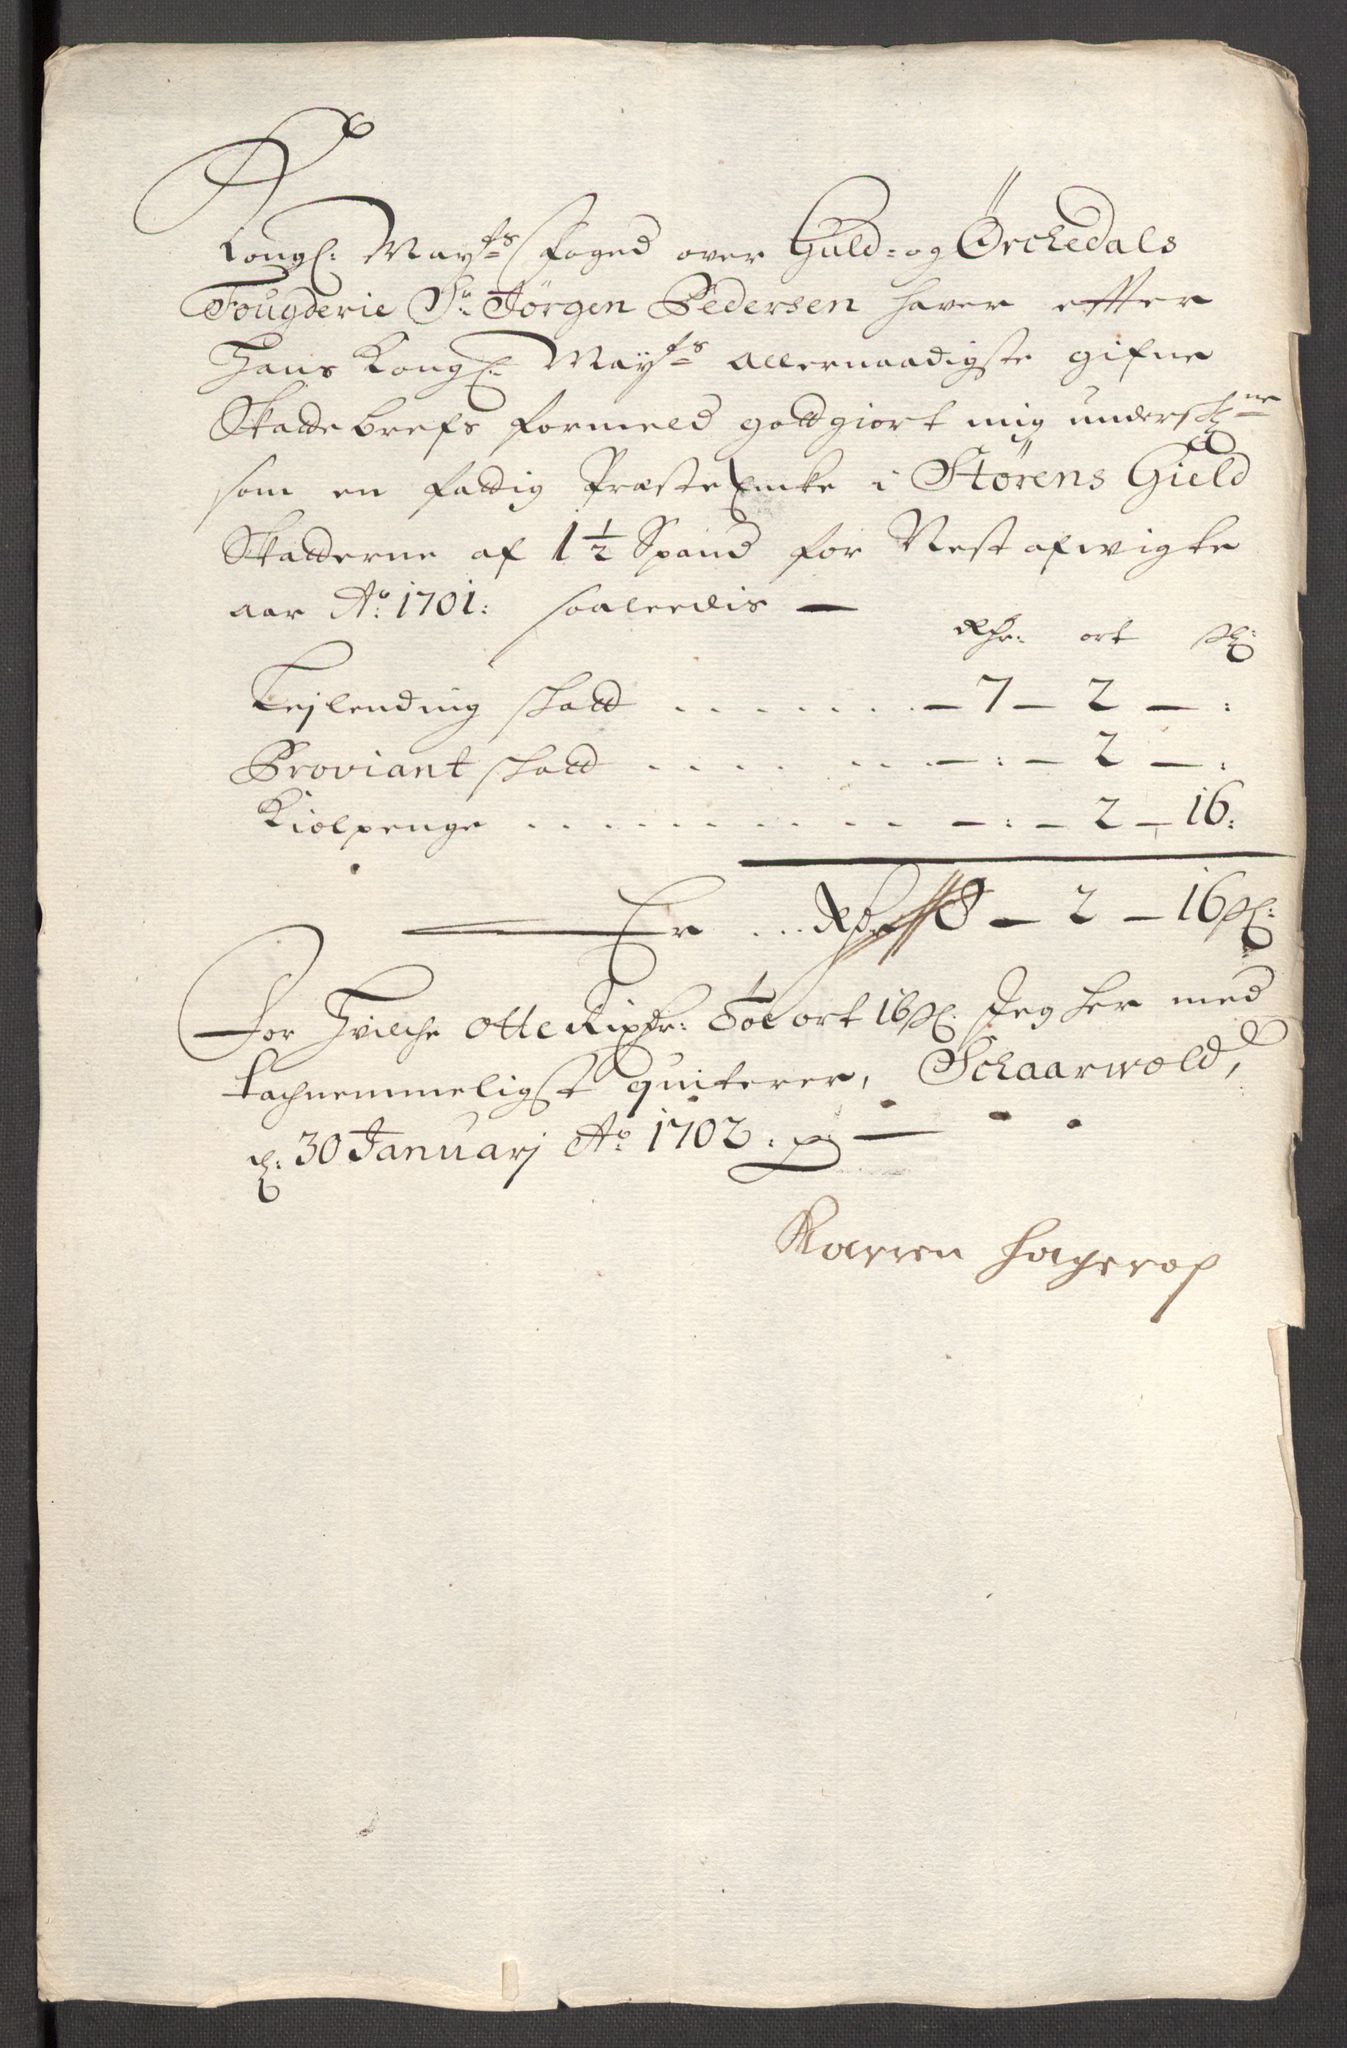 Kongl: Mayts foged over Guld- og Ørchedals
Fougderie Sr. Jørgen Pedersen hafver efter
Hans Kongl: Mayts allernaadigste gifne
Skattebrefs formeld gottgiort mig undersch:ne
som en fattig Præste Encke i Størens Gield
Skatterne af 1½ Spand for Nest afwigte
aar Ao. 1701: saaleedis —
Rdr: ort sl:
Leylending skatt . . . . . . . — 7 — 2 — :
Proviant skatt . . . . . . . — : — 2 — :
Kiolpenge . . . . . . . . . — : — 2 — 16:
Er ... Rdr 8 — 2 — 16 sl:
For Hvilche Otte Rixdr: Toe ort 16 sl: Jeg her med
tachnemmeligst quiterer, Schaarwold,
d: 30 Januarj Ao. 1702:
Karren Hagerop